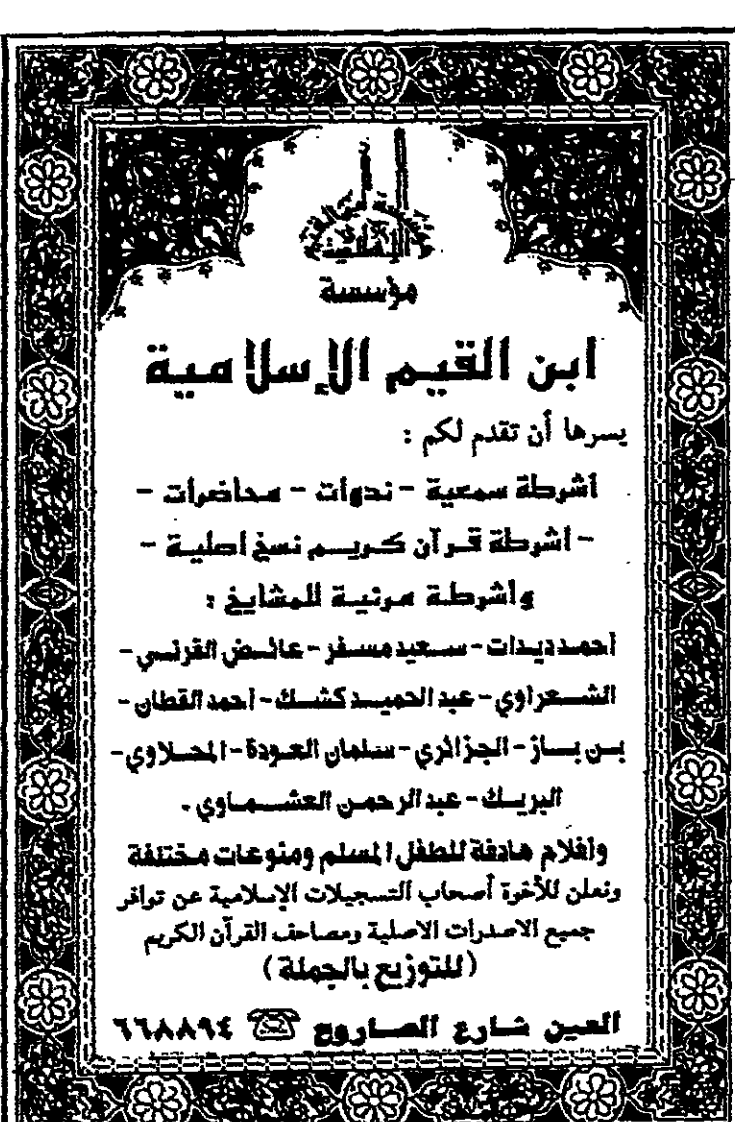 مؤسسة ابن القيم الإسلامية
مؤسسة
ابن القيم الإسلامية
يسرها أن تقدم لكم :
أشرطة سمعية - ندوات - محاضرات -
- اشرطة قرآن كريم نسخ اصلية -
وأشرطة مرئية للمشايخ :
أحمد ديدات - سعيد مسفر - عائض القرني -
الشعراوي - عبد الحميد كشك - أحمد القطان -
بن باز - الجزائري - سلمان العودة - المحلاوي -
البريك - عبد الرحمن العشماوي .
وافلام هادفة للطفل المسلم ومنوعات مختلفة
ونعلن للأخوة أصحاب التسجيلات الإسلامية عن توافر
جميع الاصدرات الاصلية ومصاحف القرآن الكريم
( للتوزيع بالجملة )
العين شارع الصاروج ☎ ٦٦٨٨٩٤